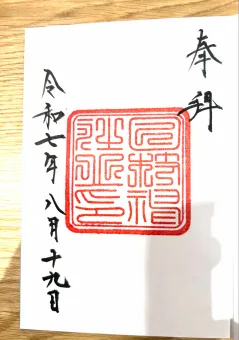 奉拝
令和七年八月十九日